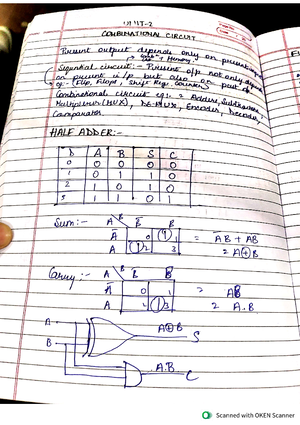 UNIT-2
COMBINATIONAL CIRCUIT
Present output depends only on present i/p
→ Memory.
Sequential circuit :- Present o/p not only depend
on present i/p but also on past o/p
eg :- (Flip, Flops, Shift Reg, Counter)
Combinational circuit eg:- = Adders, Subtractor
Multiplexer (MUX), De-MUX, Encoder, Decoder,
Comparator.
HALF ADDER:-
A B S C
0 0 0 0 0
1 0 1 1 0
2 1 0 1 0
3 1 1 0 1
Sum:- A B B̅ B
A̅ 0 1 1 = A̅B + AB̅
A 1 2 3 = A⊕B
Carry:- A B B̅ B
A̅ 0 1 = AB
A 2 1 3 = A.B
A A⊕B
B S
A.B
C
Scanned with OKEN Scanner